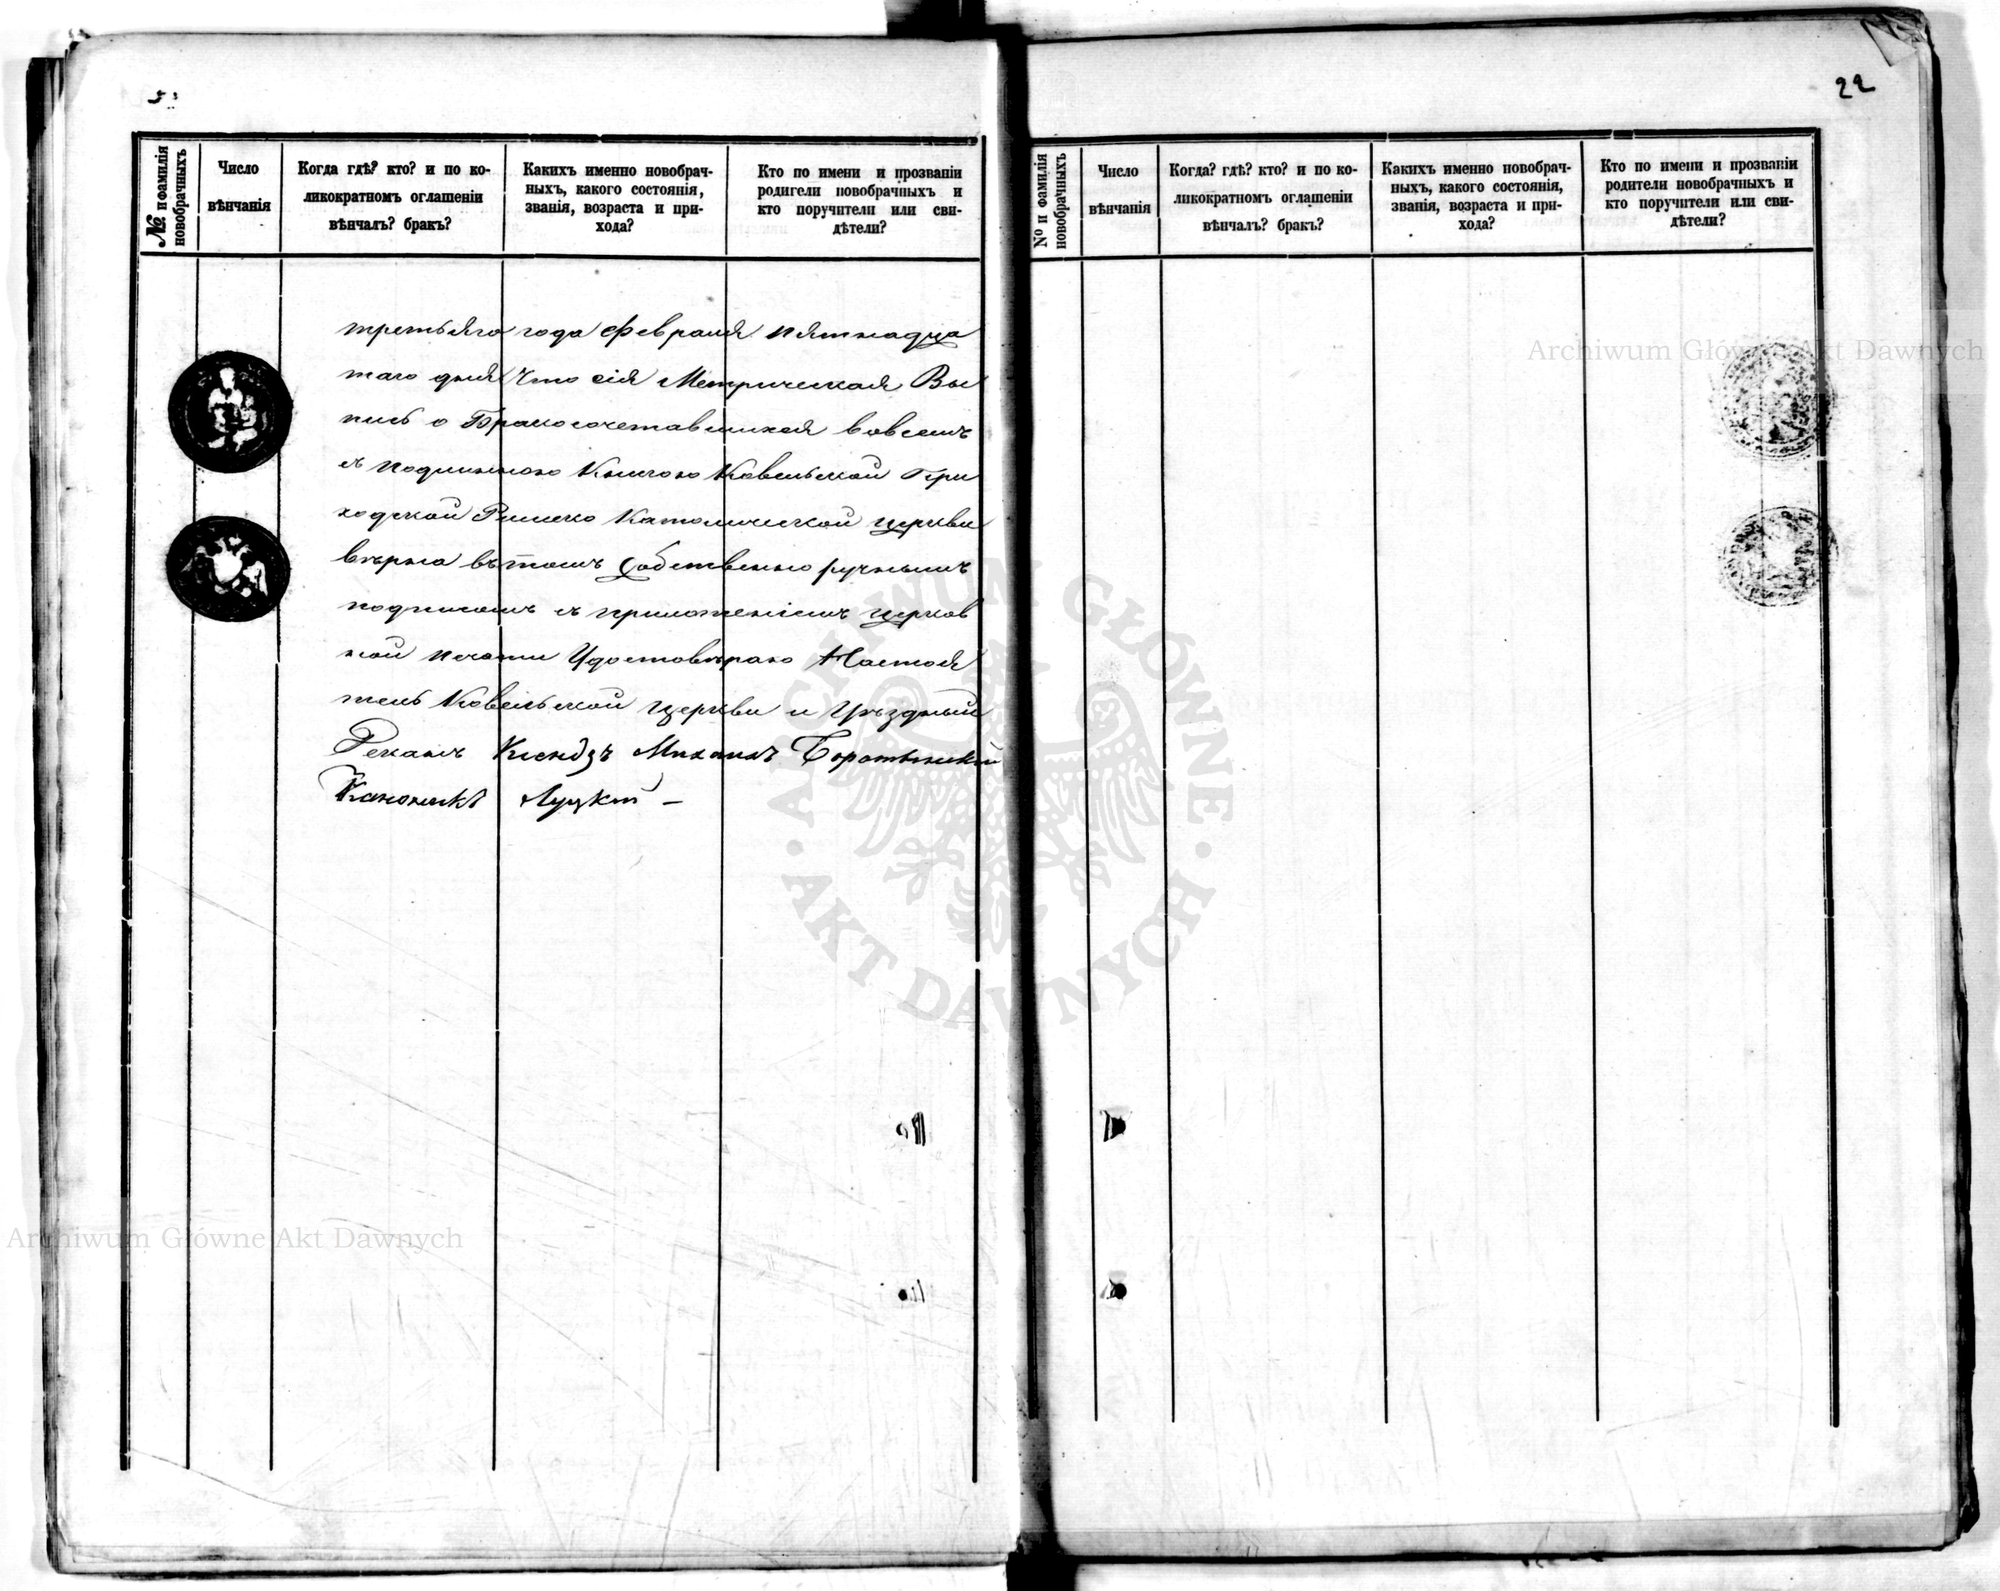 22
№ и фамилія новобрачныхъ
Число вѣнчанія
Когда гдѣ? кто? и по ко-
ликократномъ оглашеніи
вѣнчалъ? бракъ?
Какихъ именно новобрач-
ныхъ, какого состоянія,
званія, возраста и при-
хода?
Кто по имени и прозваніи
родители новобрачныхъ и
кто поручители или сви-
дѣтели?
третьяго года Февраля пятнадца
таго дня Что сія Метрическая Вы
пись о Бракосочетавшихся вовсемъ
съ подлинною Книгою Ковельской При
ходской Римско Католической Церкви
вѣрна въ томъ собственно ручнымъ
подписомъ съ приложеніемъ церков
ной печати Удостовѣряю Настоя
тель Ковельской Церкви и Уѣздный
Деканъ Ксендзъ Михаилъ Боротынскій
Каноникъ Луцкій –
№ и фамилія новобрачныхъ
Число вѣнчанія
Когда? гдѣ? кто? и по ко-
ликократномъ оглашеніи
вѣнчалъ? бракъ?
Какихъ именно новобрач-
ныхъ, какого состоянія,
званія, возраста и при-
хода?
Кто по имени и прозваніи
родители новобрачныхъ и
кто поручители или сви-
дѣтели?
Archiwum Główne Akt Dawnych
ARCHIWUM GŁÓWNE · AKT DAWNYCH ·
Archiwum Główne Akt Dawnych